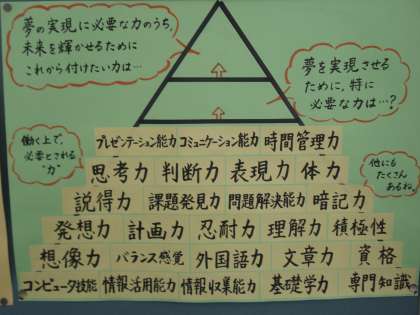 夢の実現に必要な力のうち、
未来を輝かせるために
これから付けたい力は…
夢を実現させる
ために、特に
必要な力は…?
働く上で、
必要とされる
"力"
他にも
たくさん
あるね。
プレゼンテーション能力 コミュニケーション能力 時間管理力
思考力 判断力 表現力 体力
説得力 課題発見力 問題解決能力 暗記力
発想力 計画力 忍耐力 理解力 積極性
想像力 バランス感覚 外国語力 文章力 資格
コンピュータ技能 情報活用能力 情報収集能力 基礎学力 専門知識